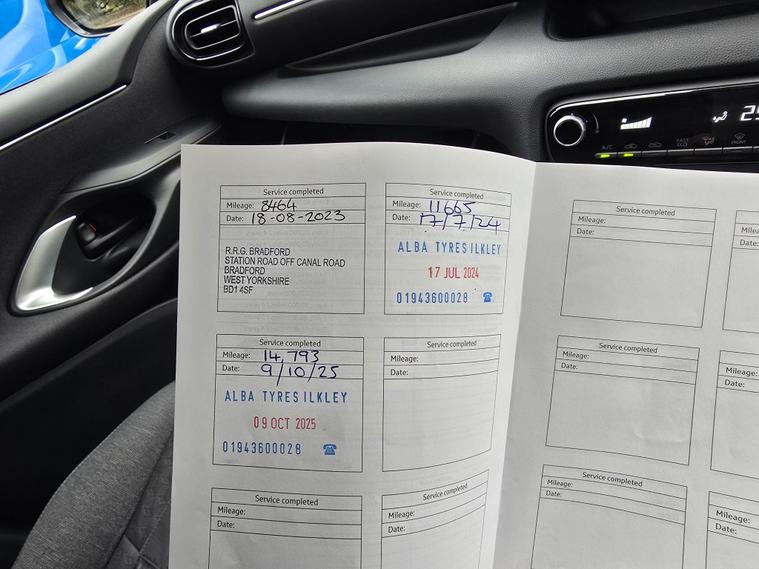 Service completed
Mileage: 8464
Date: 18-08-2023
R.R.G. BRADFORD
STATION ROAD OFF CANAL ROAD
BRADFORD
WEST YORKSHIRE
BD1 4SF
Service completed
Mileage: 11665
Date: 17/7/24
ALBA TYRES ILKLEY
17 JUL 2024
01943600028
Service completed
Mileage: 14,793
Date: 9/10/25
ALBA TYRES ILKLEY
09 OCT 2025
01943600028
Service completed
Mileage:
Date:
Service completed
Mileage:
Date:
Service completed
Mileage:
Date:
Service completed
Mileage:
Date:
Mileage:
Date:
Service completed
Mileage:
Date:
Mileage:
Date:
Service completed
Mileage:
Date:
Mileage:
Date:
A/C
FAST
ECO
FRONT